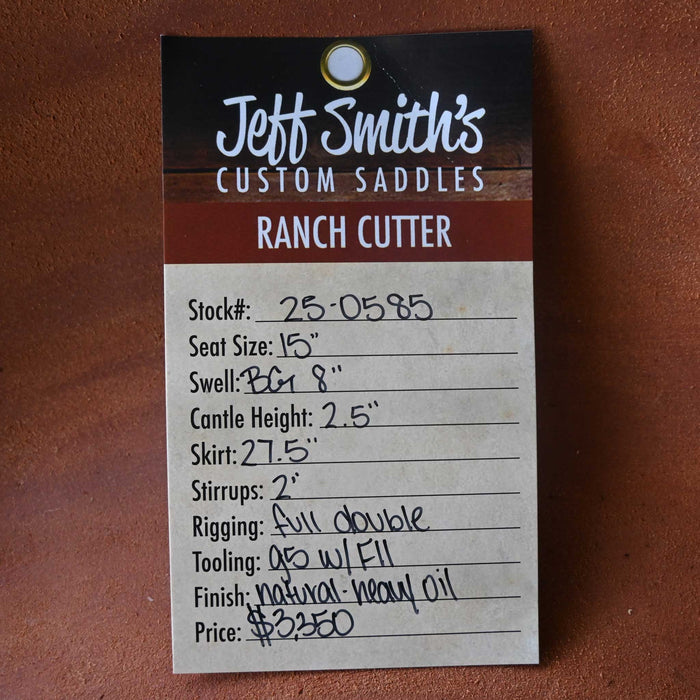 Jeff Smith's
CUSTOM SADDLES
RANCH CUTTER
Stock#: 25-0585
Seat Size: 15"
Swell: BG 8"
Cantle Height: 2.5"
Skirt: 27.5"
Stirrups: 2"
Rigging: full double
Tooling: g5 w/ F11
Finish: natural-heavy oil
Price: $3,350